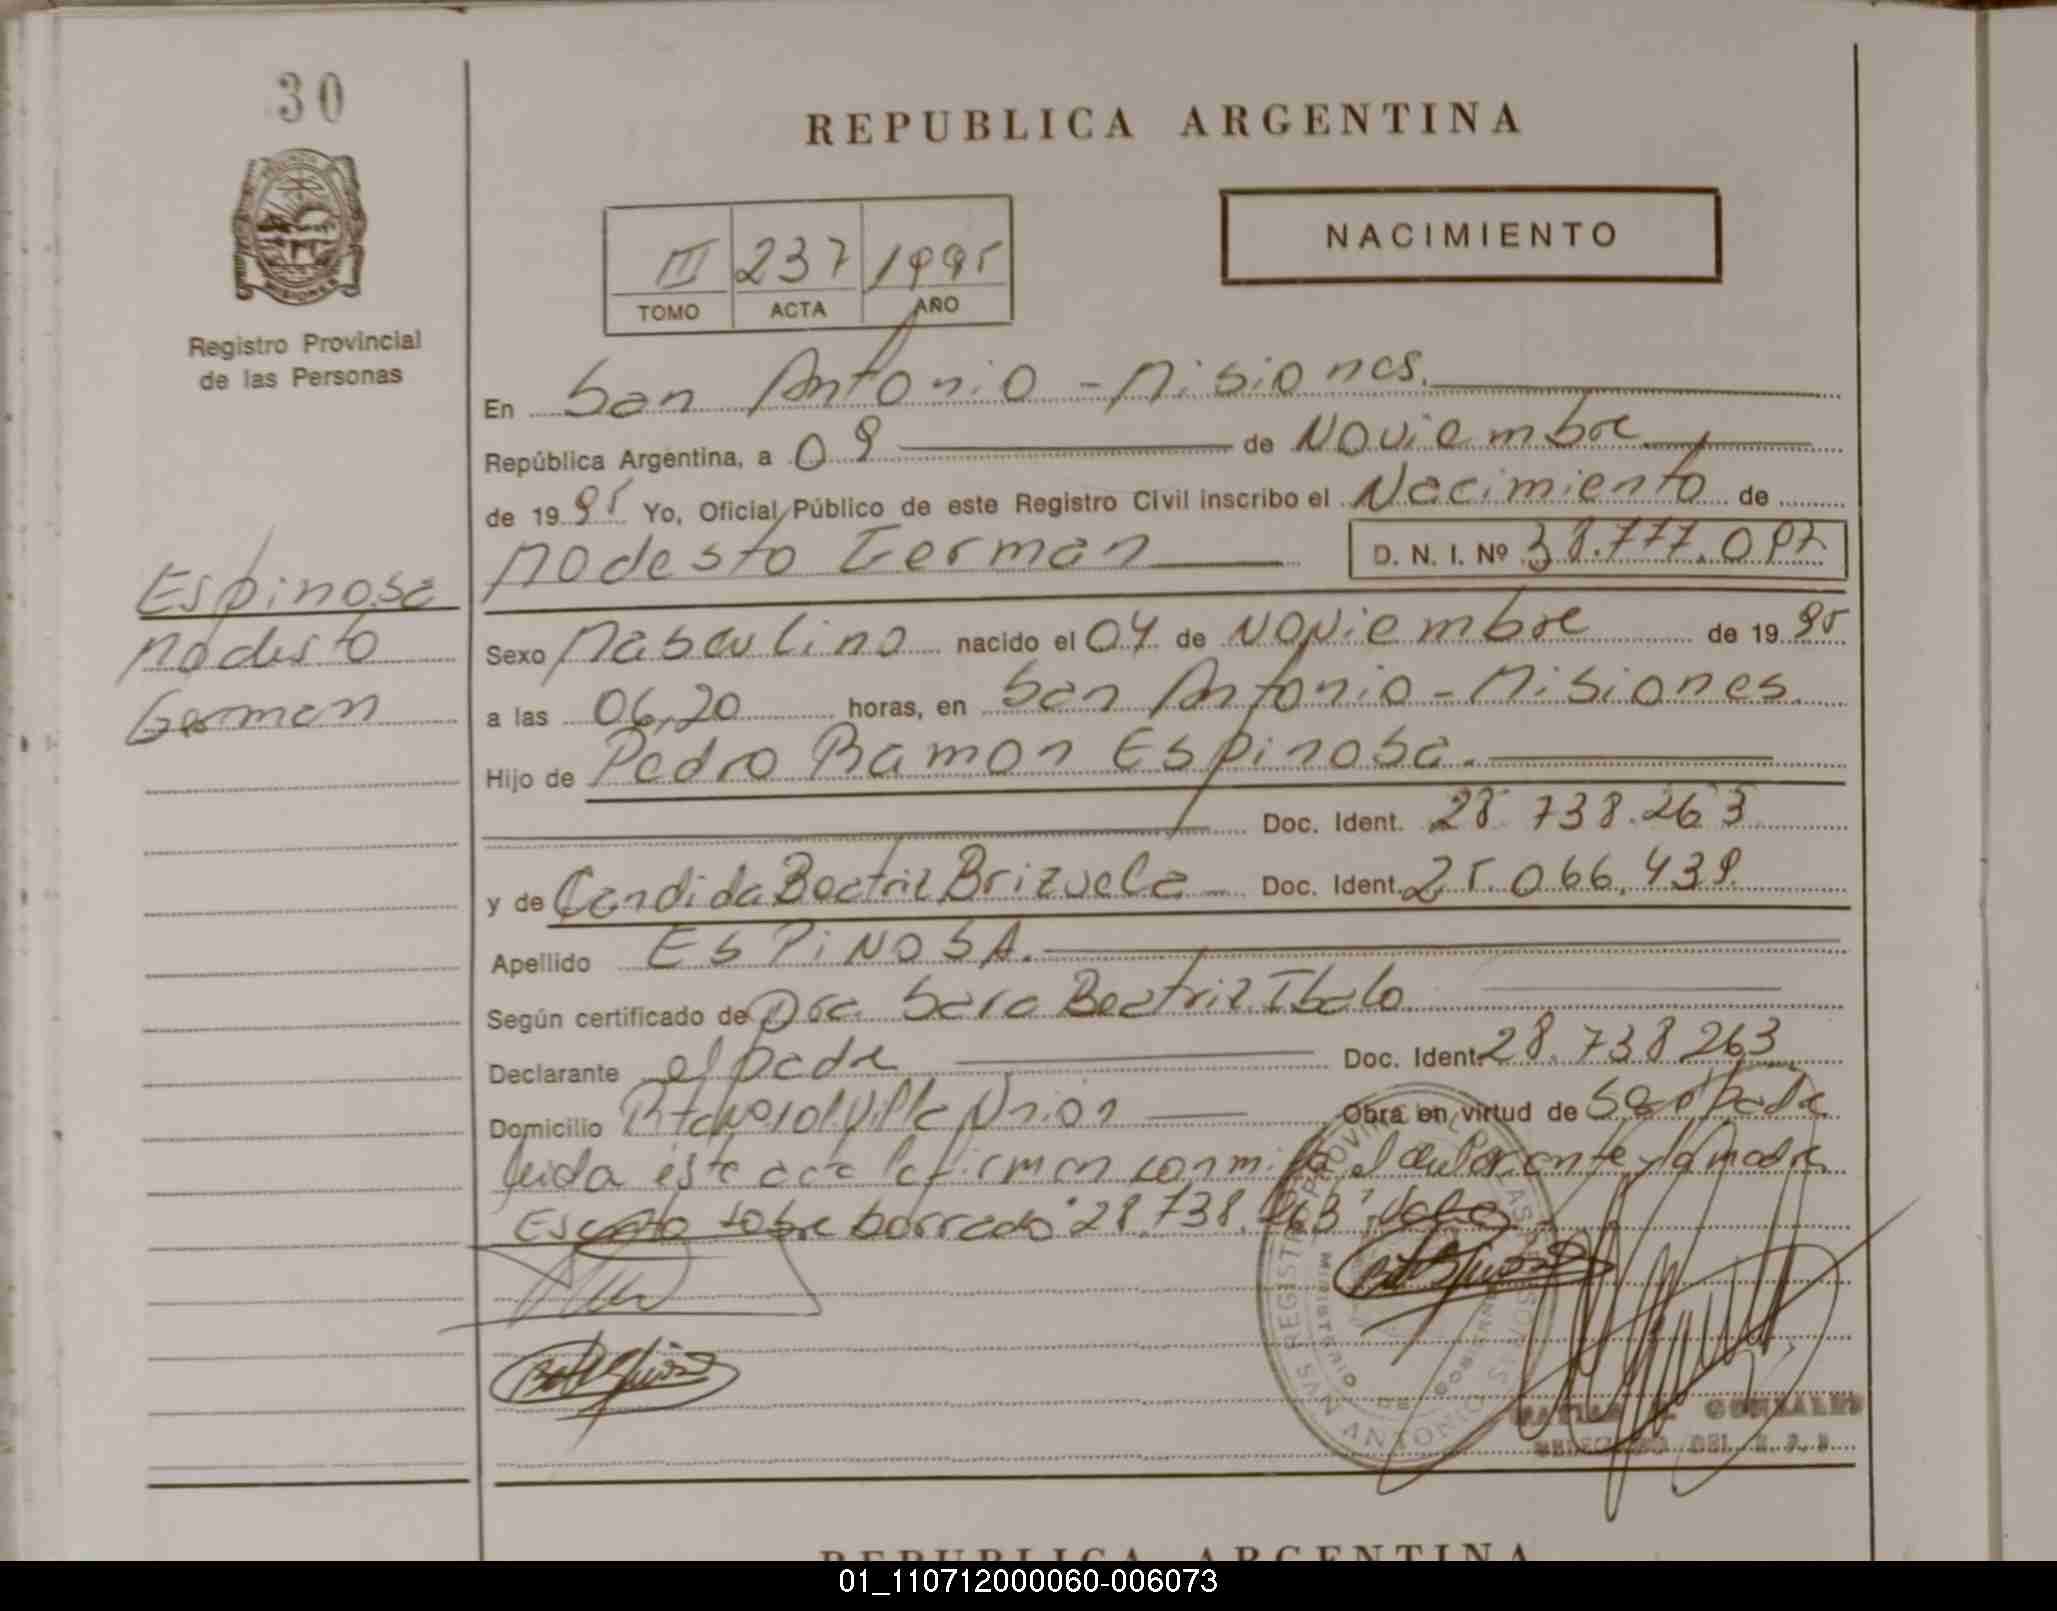 30
REPUBLICA ARGENTINA
NACIMIENTO
III 237 1995
TOMO ACTA AÑO
Registro Provincial
de las Personas
En San Antonio - Misiones.
República Argentina, a 09 de Noviembre
de 1995 Yo, Oficial Público de este Registro Civil inscribo el Nacimiento de
Modesto German D. N. I. Nº 38.777.097
Espinosa
Modesto
German
Sexo Masculino nacido el 04 de Noviembre de 1995
a las 06,20 horas, en San Antonio - Misiones.
Hijo de Pedro Ramon Espinosa.
Doc. Ident. 28.738.263
y de Candida Beatriz Brizuela Doc. Ident. 25.066.439
Apellido ESPiNOSA.
Según certificado de Dra. Sara Beatriz Ibalo
Declarante el padre Doc. Ident. 28.738.263
Domicilio Villa Union Obra en virtud de Ser padre
leida este acta la firman conmigo el declarante y la madre
Escrito sobre borrado "28.738.263" Vale
REGISTRO PROVINCIAL DE LAS PERSONAS
MINISTERIO DE GOBIERNO
SAN ANTONIO
GONZALEZ
DELEGADO DEL R. P. P.
REPUBLICA ARGENTINA
01_110712000060-006073